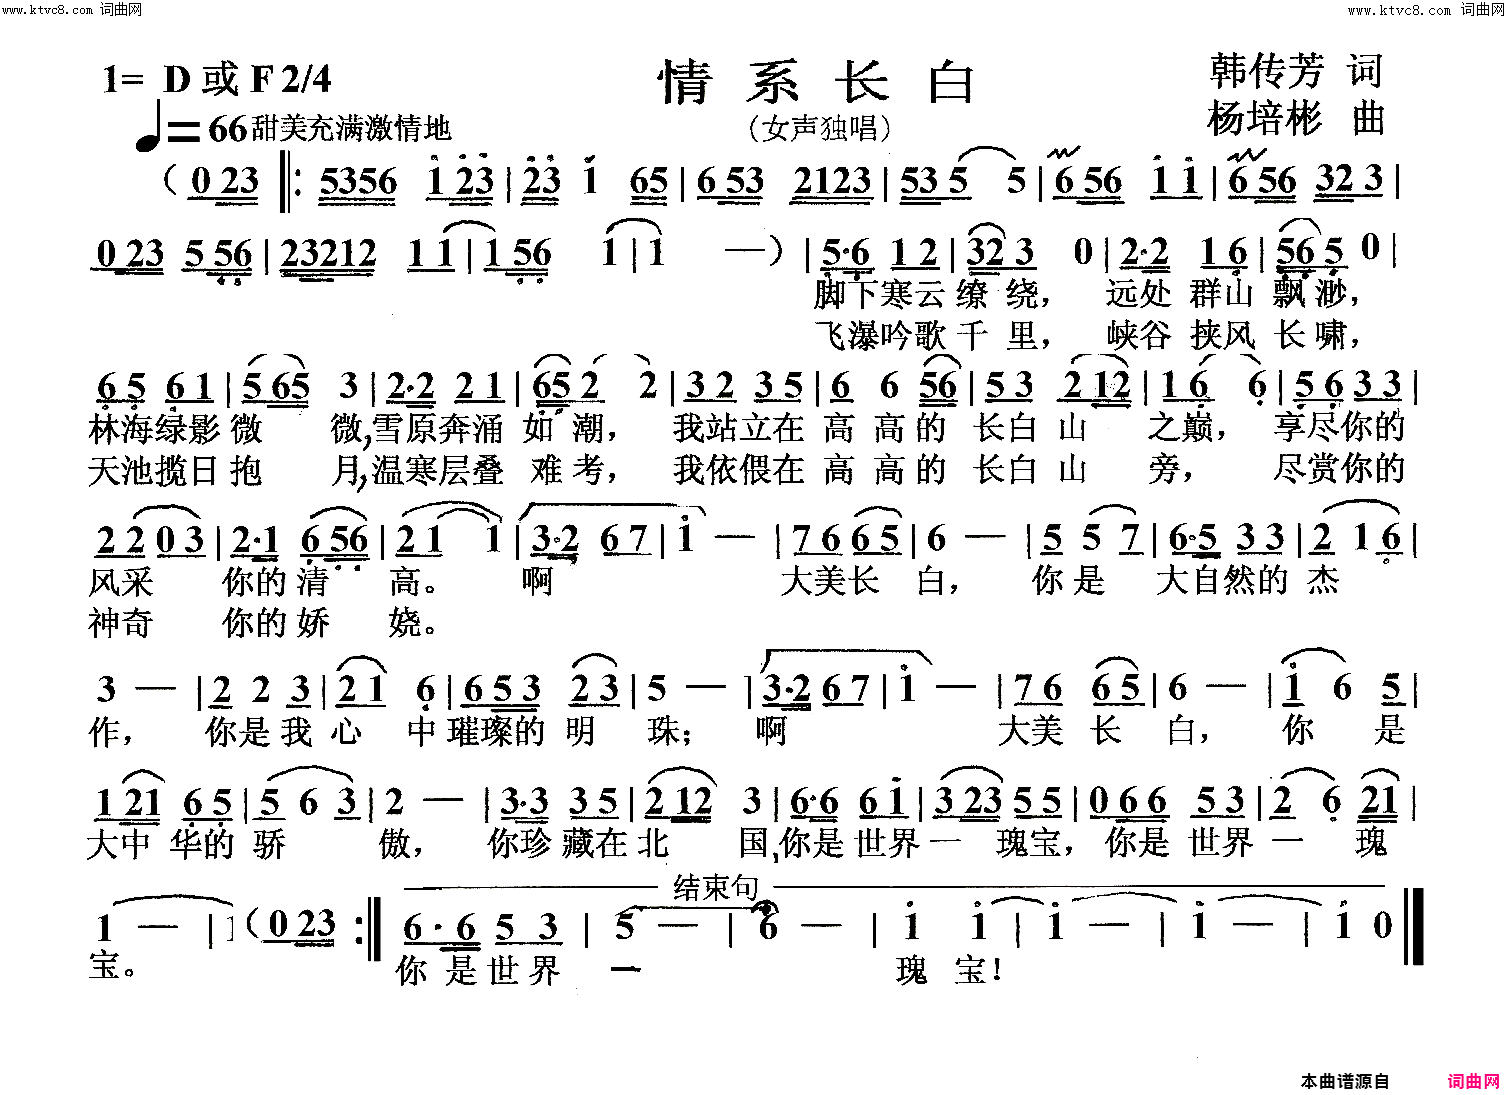 www.ktvc8.com 词曲网
www.ktvc8.com 词曲网
1= D 或 F 2/4
情系长白
韩传芳 词
♩=66 甜美充满激情地
(女声独唱)
杨培彬 曲
(0 23 ‖: 5356 1 23 | 23 1 65 | 6 53 2123 | 53 5 5 | 6 56 1 1 | 6 56 32 3 |
0 23 5 56 | 23212 1 1 | 1 56 1 | 1 —) | 5·6 1 2 | 32 3 0 | 2·2 1 6 | 56 5 0 |
脚下寒云缭绕， 远处群山飘渺，
飞瀑吟歌千里， 峡谷挟风长啸，
6 5 6 1 | 5 65 3 | 2·2 2 1 | 65 2 2 | 3 2 3 5 | 6 6 56 | 5 3 2 12 | 1 6 6 | 5 6 3 3 |
林海绿影微微,雪原奔涌如潮， 我站立在高高的长白山之巅， 享尽你的
天池揽日抱月,温寒层叠难考， 我依偎在高高的长白山旁， 尽赏你的
2 2 0 3 | 2·1 6 56 | 2 1 1 | 3·2 6 7 | 1 — | 7 6 6 5 | 6 — | 5 5 7 | 6·5 3 3 | 2 1 6 |
风采 你的清高。 啊 大美长白， 你是大自然的杰
神奇 你的娇娆。
3 — | 2 2 3 | 2 1 6 | 6 5 3 2 3 | 5 — | 3·2 6 7 | 1 — | 7 6 6 5 | 6 — | 1 6 5 |
作， 你是我心中璀璨的明珠； 啊 大美长白， 你是
1 21 6 5 | 5 6 3 | 2 — | 3·3 3 5 | 2 12 3 | 6·6 6 1 | 3 23 5 5 | 0 6 6 5 3 | 2 6 21 |
大中华的骄傲， 你珍藏在北国,你是世界一瑰宝， 你是世界一瑰
结束句
1 — | 1 (0 23 :‖ 6·6 5 3 | 5 — | 6 — | 1 1 | 1 — | 1 — | 1 0 ‖
宝。 你是世界一瑰宝！
本曲谱源自 词曲网